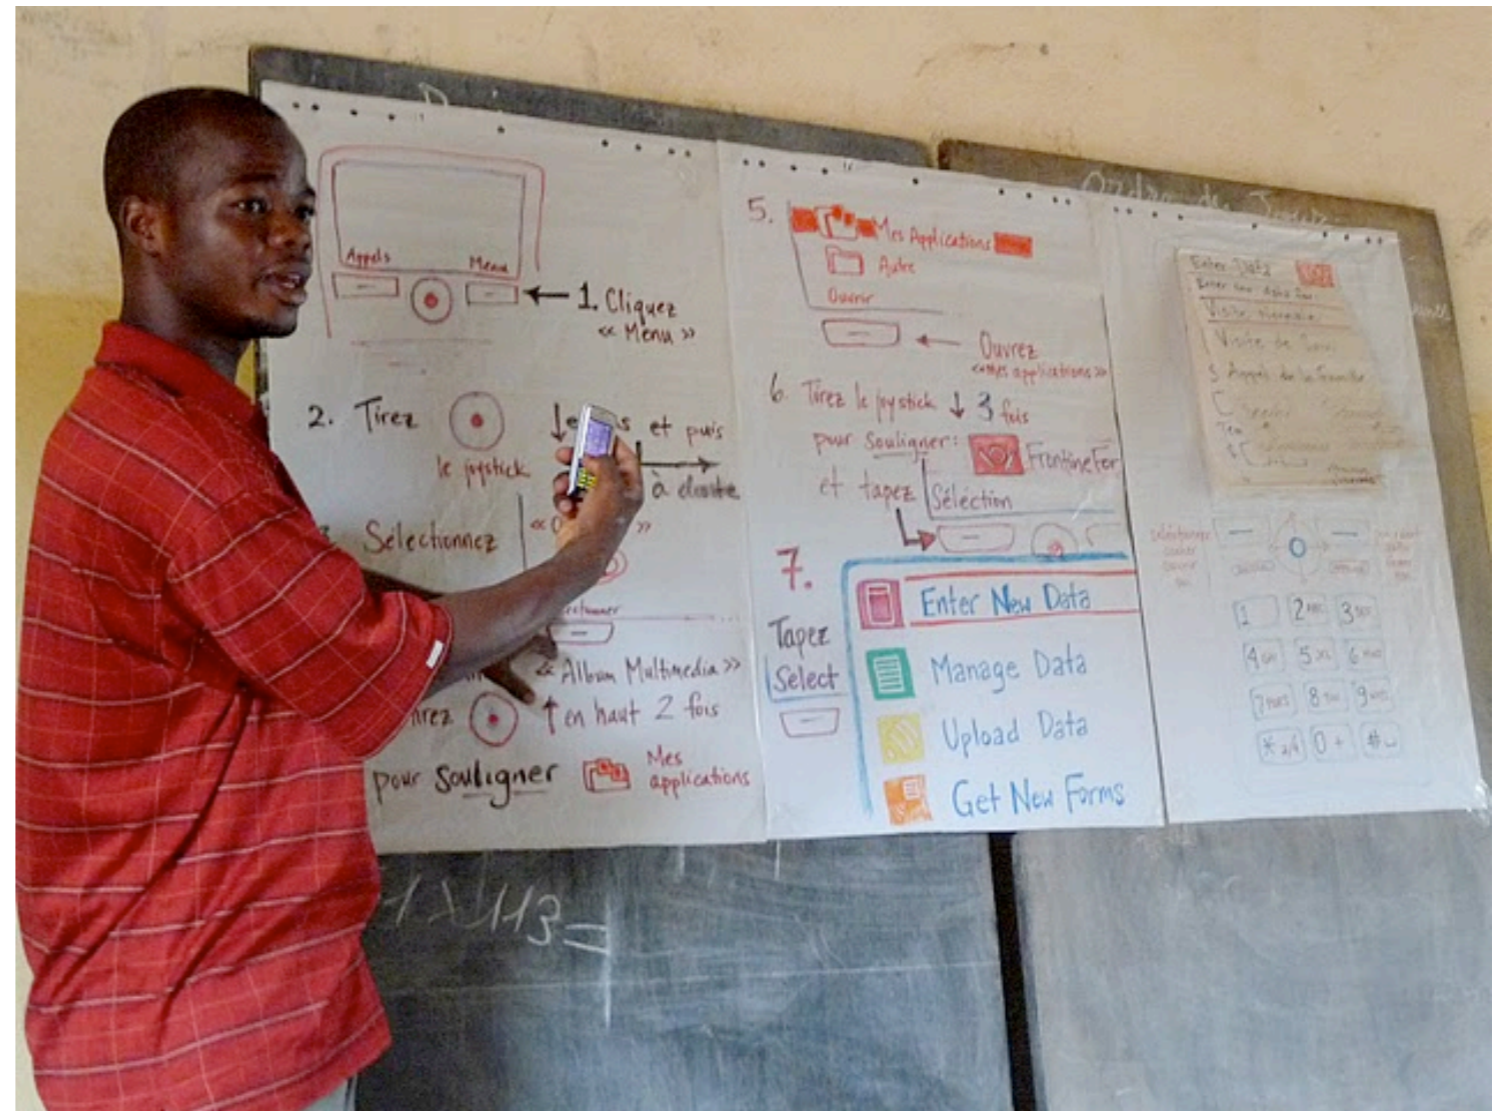 Appels
Menu
1. Cliquez
<< Menu >>
2. Tirez
et puis
le joystick
à droite
Sélectionnez
<< Album Multimedia >>
en haut 2 fois
pour souligner
Mes
applications
5.
Mes Applications
Autre
Ouvrir
Ouvrez
<<Mes applications>>
6. Tirez le joystick ↓ 3 fois
pour souligner:
FrontlineFor
et tapez
Séléction
7.
Tapez
Select
Enter New Data
Manage Data
Upload Data
Get New Forms
Enter Data
Enter New data for:
Visite
Visite de
Appel de la famille
1
2 ABC
3 DEF
4 GHI
5 JKL
6 MNO
7 PQRS
8 TUV
9 WXYZ
*
0 +
#
Ordre du Jour
113=